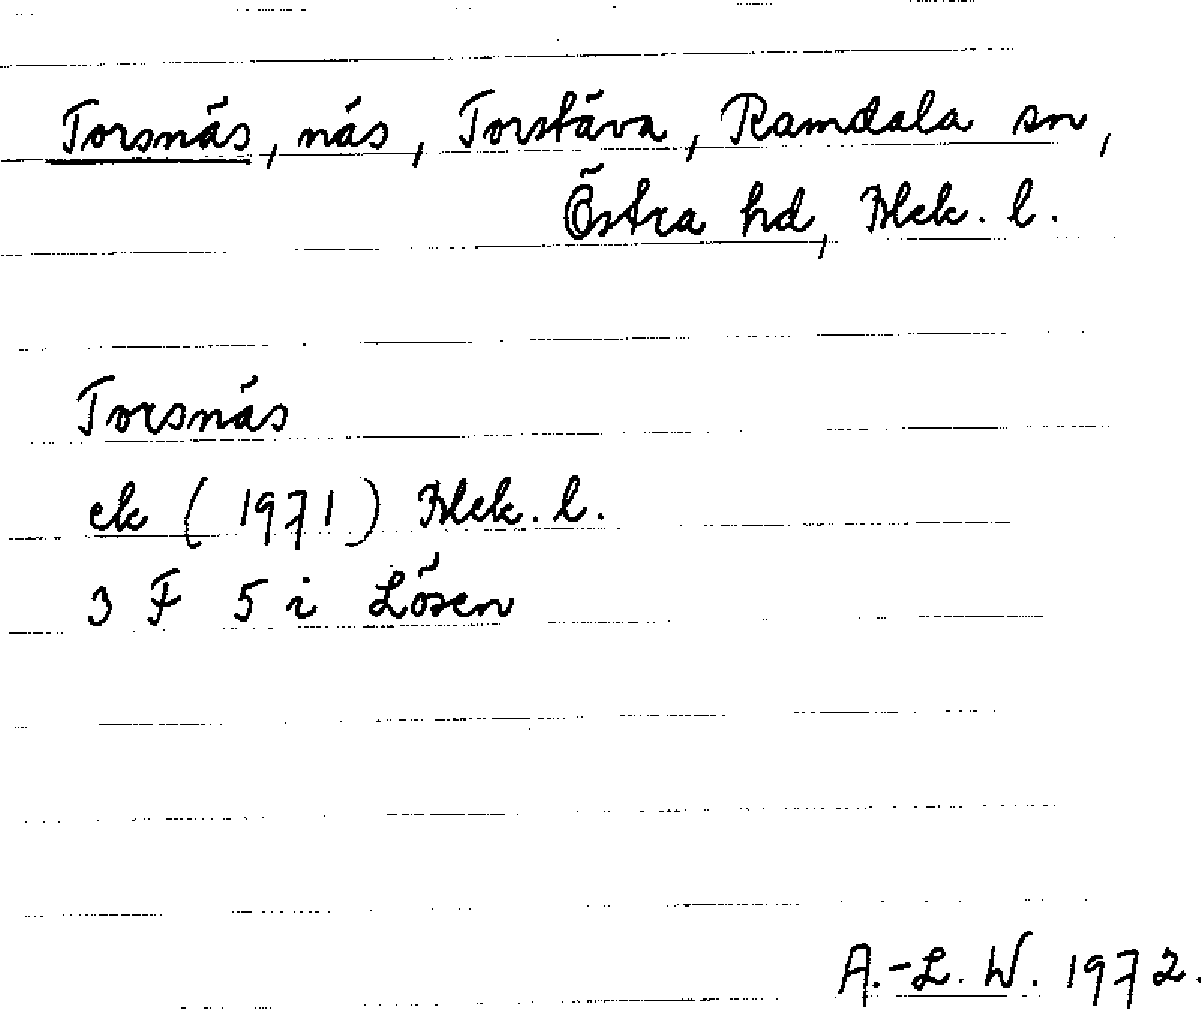 Torsnäs, näs, Torstäva, Ramdala sn,
Östra hd, Blek. l.
Torsnäs
ek (1971) Blek. l.
3 F 5 i Lösen
A.-L. W. 1972.